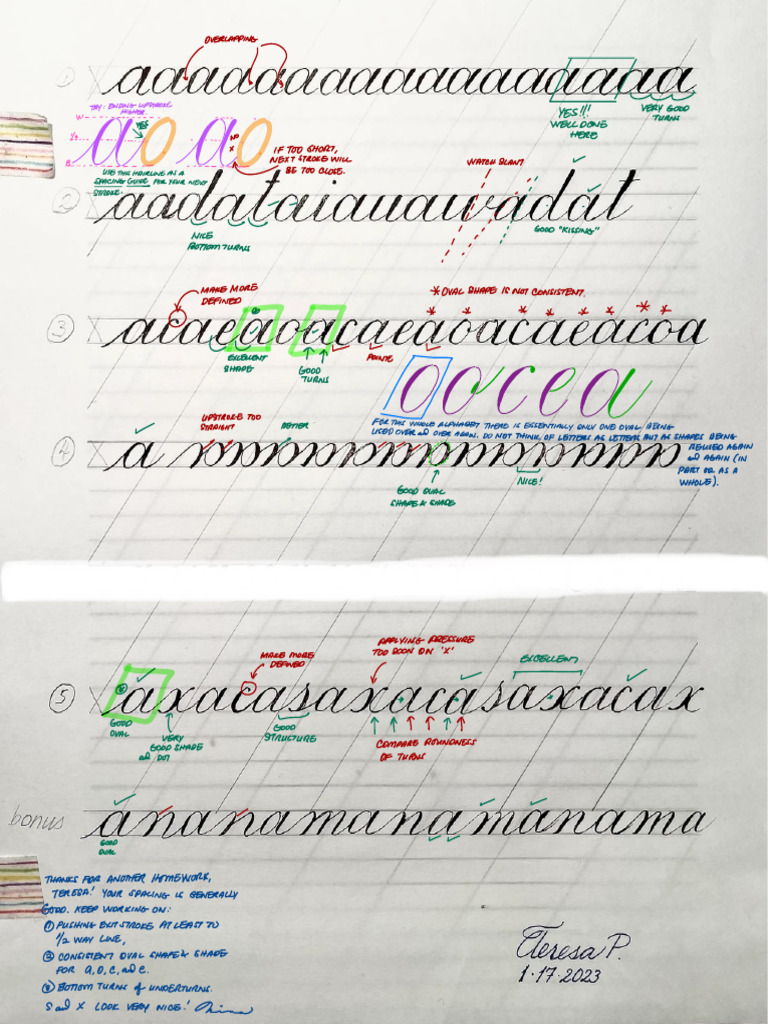 OVERLAPPING
1
aaaaaaaaaaaaaaaaaa
TRY: ENDING UPSTROKE
HIGHER.
YES!!!
WELL DONE
HERE
VERY GOOD
TURNS
W
1/2
B
YES
ao ao
NO
X
IF TOO SHORT,
NEXT STROKE WILL
BE TOO CLOSE.
USE THIS HAIRLINE AS A
SPACING GUIDE FOR YOUR NEXT
STROKE.
WATCH SLANT
2
aadataiauawadat
NICE
BOTTOM TURNS
GOOD "KISSING"
MAKE MORE
DEFINED
*OVAL SHAPE IS NOT CONSISTENT.
3
acaeaoacaeaoacaeacoa
EXCELLENT
SHAPE
GOOD
TURNS
POINTE
o o c e a
FOR THIS WHOLE ALPHABET THERE IS ESSENTIALLY ONLY ONE OVAL BEING
USED OVER & OVER AGAIN. DO NOT THINK OF LETTERS AS LETTER BUT AS SHAPES BEING
REUSED AGAIN
& AGAIN (IN
PART OR AS A
WHOLE).
UPSTROKE TOO
STRAIGHT
BETTER
4
a
GOOD OVAL
SHAPE & SHADE
NICE!
APPLYING PRESSURE
TOO SOON ON 'X'
MAKE MORE
DEFINED
EXCELLENT
5
axacasaxacasaxacax
GOOD
OVAL
VERY
GOOD SHADE
& DOT
GOOD
STRUCTURE
COMPARE ROUNDNESS
OF TURNS
bonus
ananamanamanama
GOOD
OVAL
THANKS FOR ANOTHER HOMEWORK,
TERESA! YOUR SPACING IS GENERALLY
GOOD. KEEP WORKING ON:
1 PUSHING EXIT STROKE AT LEAST TO
1/2 WAY LINE,
2 CONSISTENT OVAL SHAPE & SHADE
FOR A, O, C, & E.
3 BOTTOM TURNS OF UNDERTURNS.
S and X LOOK VERY NICE!
Teresa P.
1·17·2023